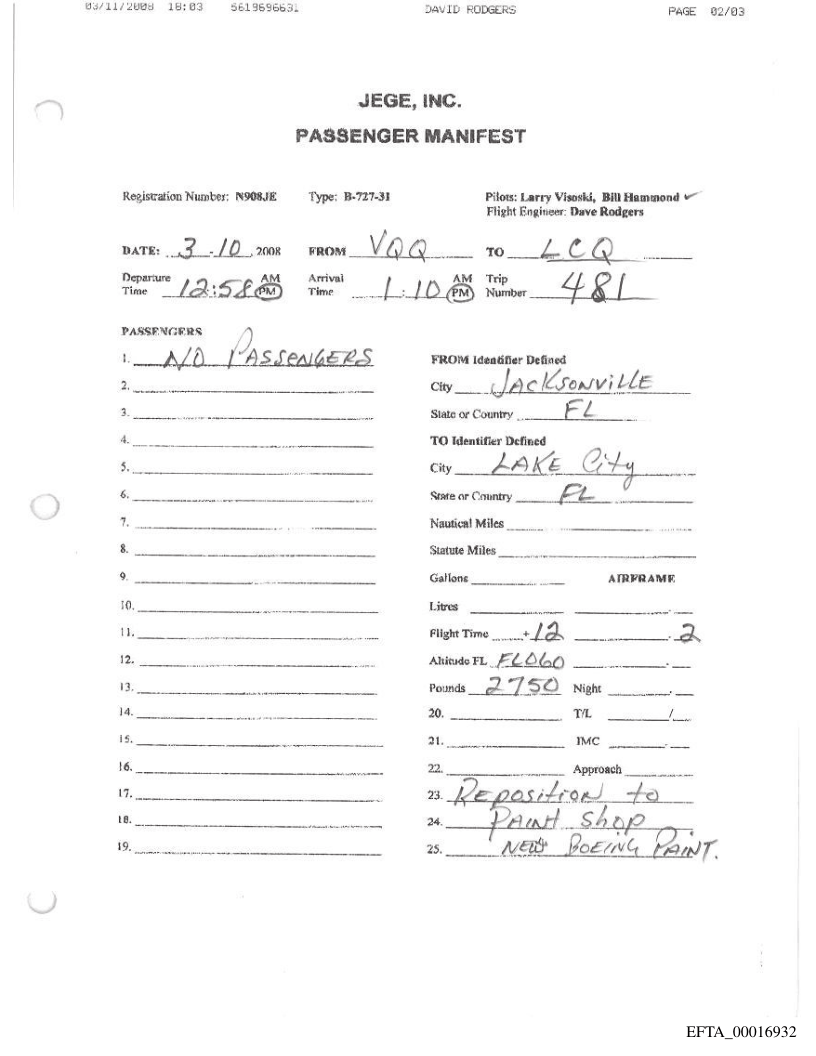 03/11/2008 18:03 5619696631 DAVID RODGERS PAGE 02/03
JEGE, INC.
PASSENGER MANIFEST
Registration Number: N908JE Type: B-727-31 Pilots: Larry Visoski, Bill Hammond ✓
Flight Engineer: Dave Rodgers
DATE: 3-10, 2008 FROM VQQ TO LCQ
Departure Time 12:58 AM PM Arrival Time 1:10 AM PM Trip Number 481
PASSENGERS
1. N/O PASSENGERS
2.
3.
4.
5.
6.
7.
8.
9.
10.
11.
12.
13.
14.
15.
16.
17.
18.
19.
FROM Identifier Defined
City JACKSONVILLE
State or Country FL
TO Identifier Defined
City LAKE City
State or Country FL
Nautical Miles
Statute Miles
Gallons AIRFRAME
Litres .
Flight Time +12 . 2
Altitude FL FL060 .
Pounds 2750 Night .
20. T/L /
21. IMC .
22. Approach
23. REPOSITION to
24. PAINT Shop
25. NEW BOEING PAINT.
EFTA_00016932